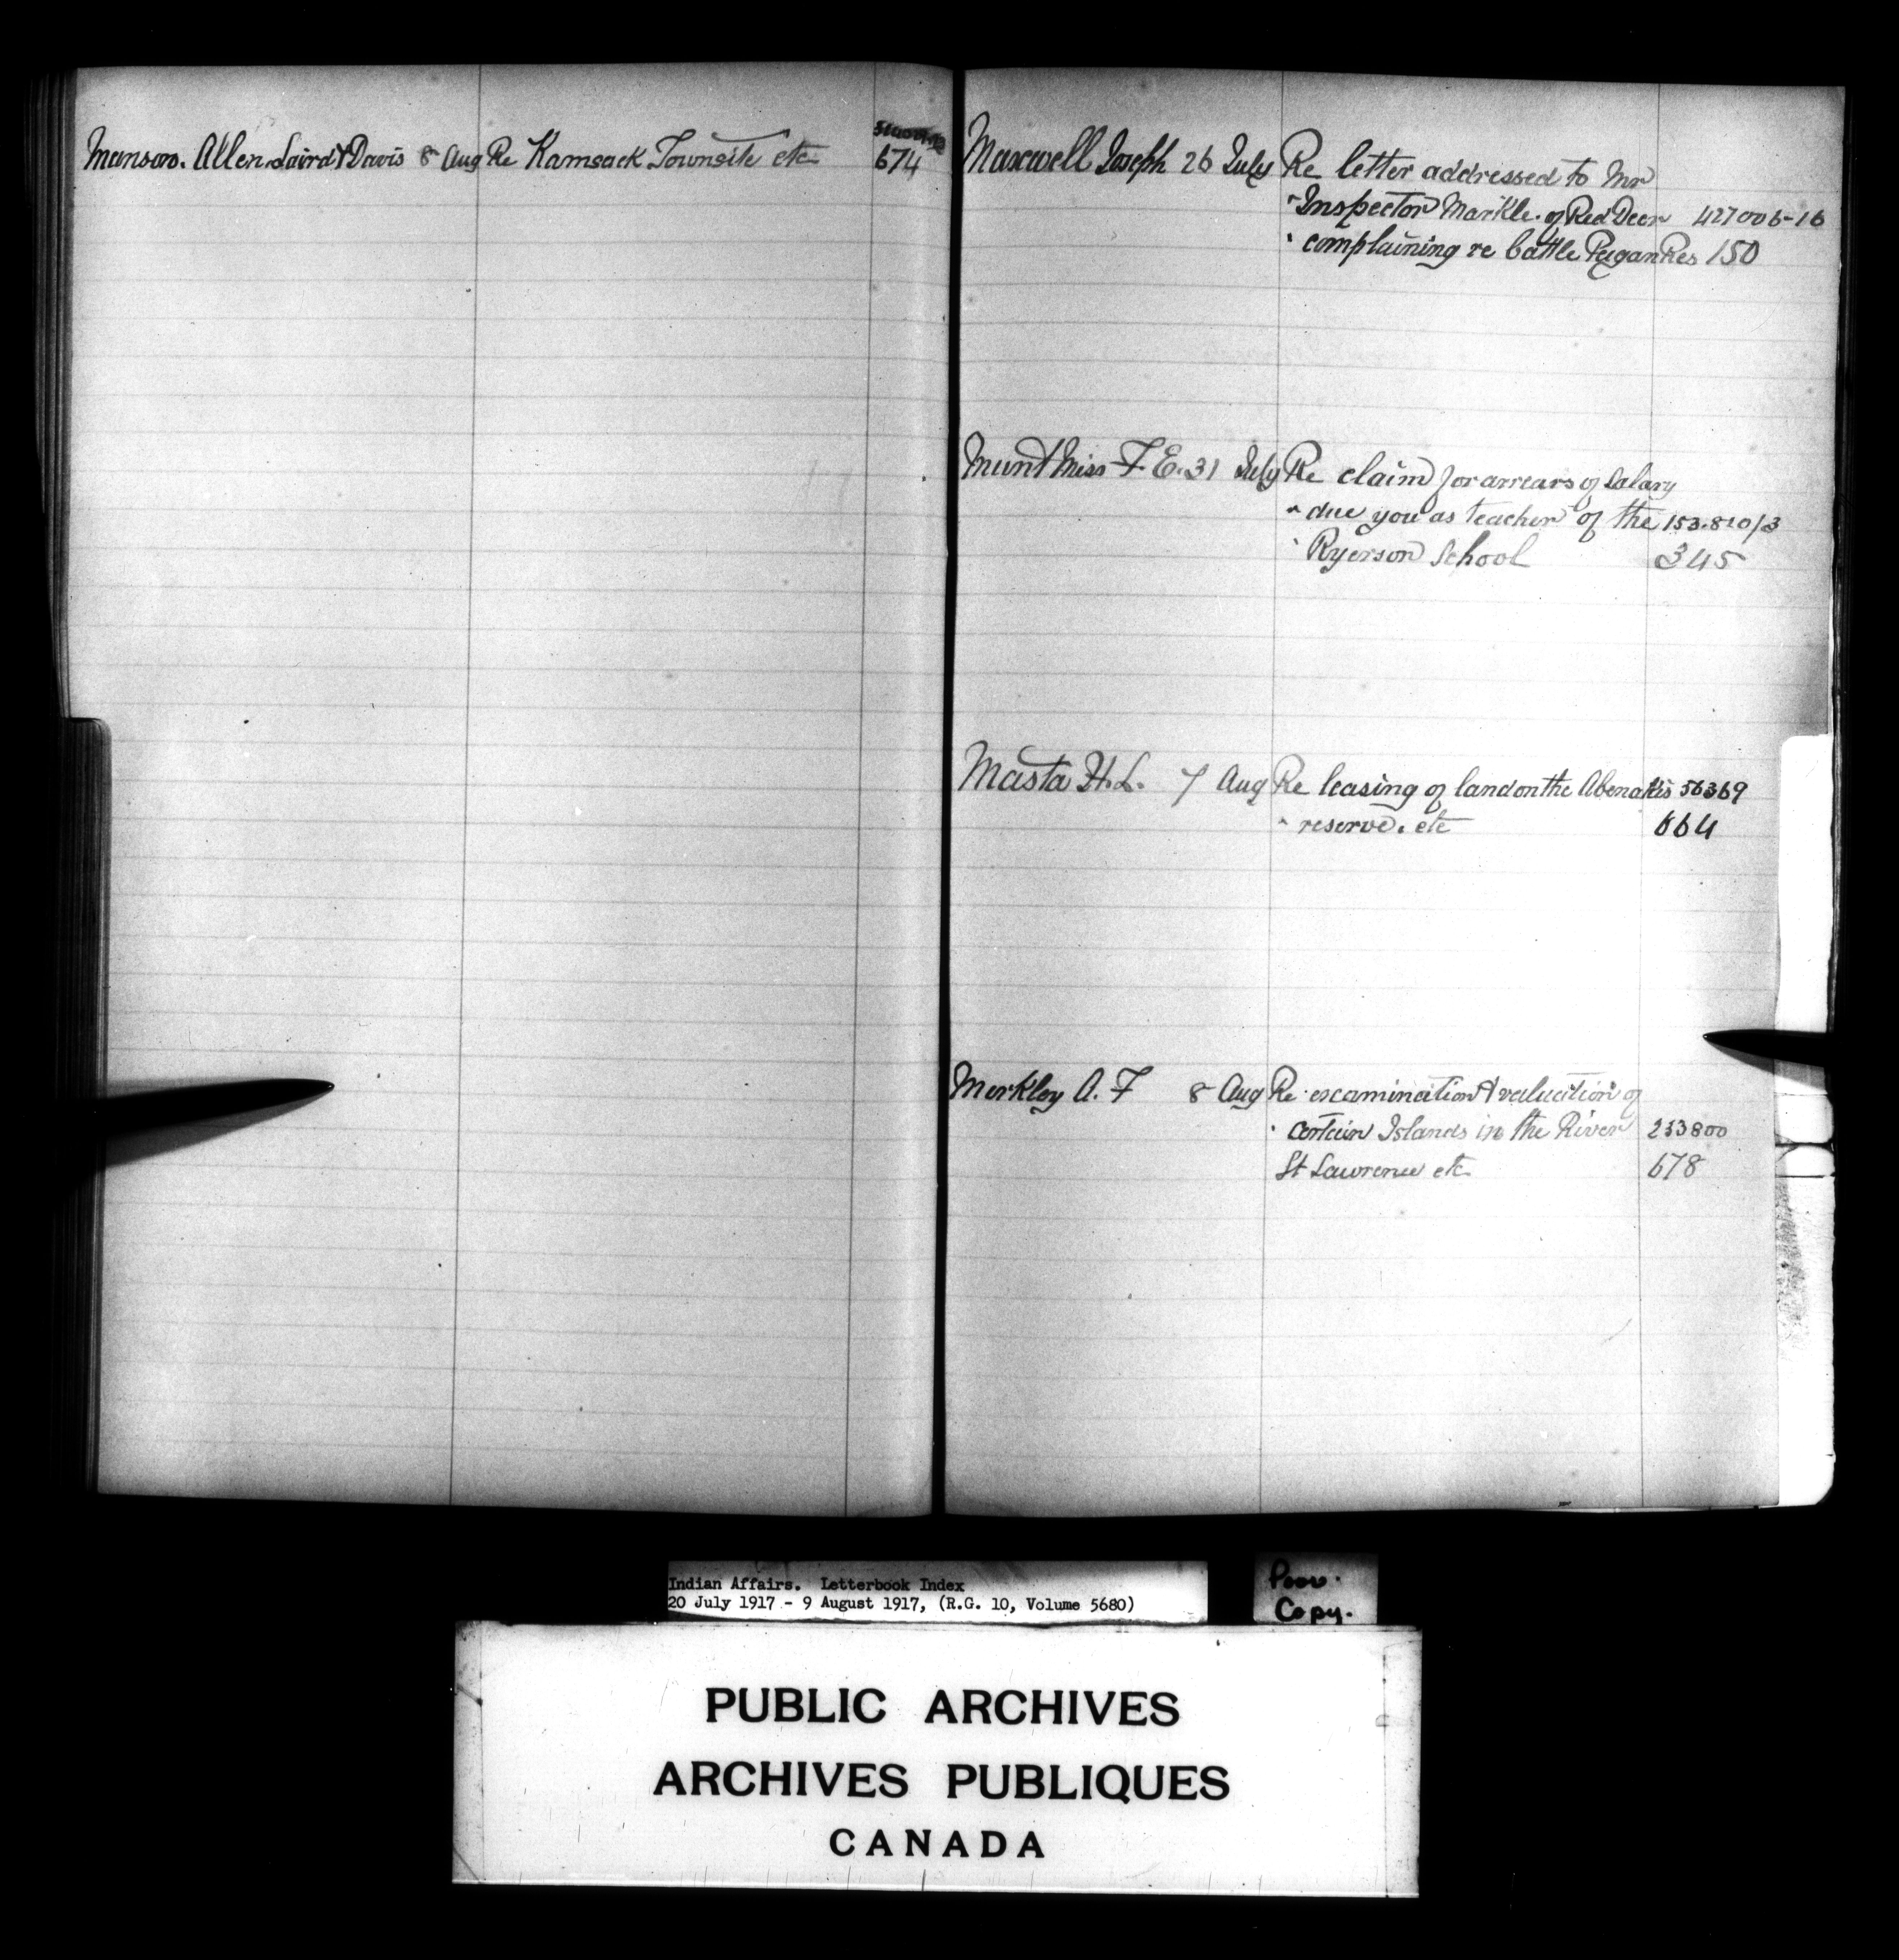 Munson. Allen Laird & Davis 8 Aug Re Kamsack Townsite etc 674
Maxwell Joseph 26 July Re letter addressed to Mr
" Inspector Markle. of Red Deer 427006-16
" complaining re battle Peigan Res 150
Munt Miss F. E. 31 July Re claim for arrears of Salary
" due you as teacher of the 153.810/3
" Ryerson School 345
Masta H. L. 7 Aug Re leasing of land on the Abenakis 56369
" reserve. etc 664
Merkley A. F 8 Aug Re examination & valuation of
" certain Islands in the River 233800
St Lawrence etc 678
Indian Affairs. Letterbook Index
20 July 1917 - 9 August 1917, (R.G. 10, Volume 5680)
Poor.
Copy.
PUBLIC ARCHIVES
ARCHIVES PUBLIQUES
CANADA